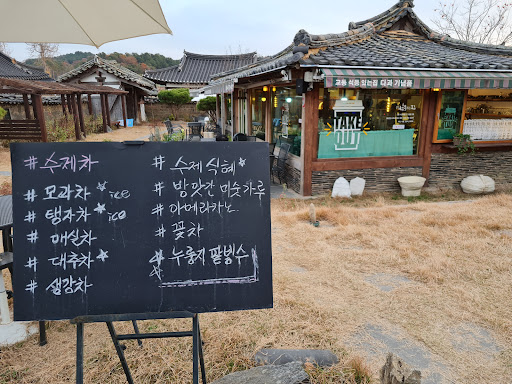 교동 식음 있는집 다과 기념품
TAKE
# 수제차
# 모과차 * ice
# 탱자차 * ice
# 매실차
# 대추차 *
# 생강차
# 수제 식혜 *
# 방앗간 미숫가루
# 아메리카노
# 꽃차
# 누룽지 팥빙수